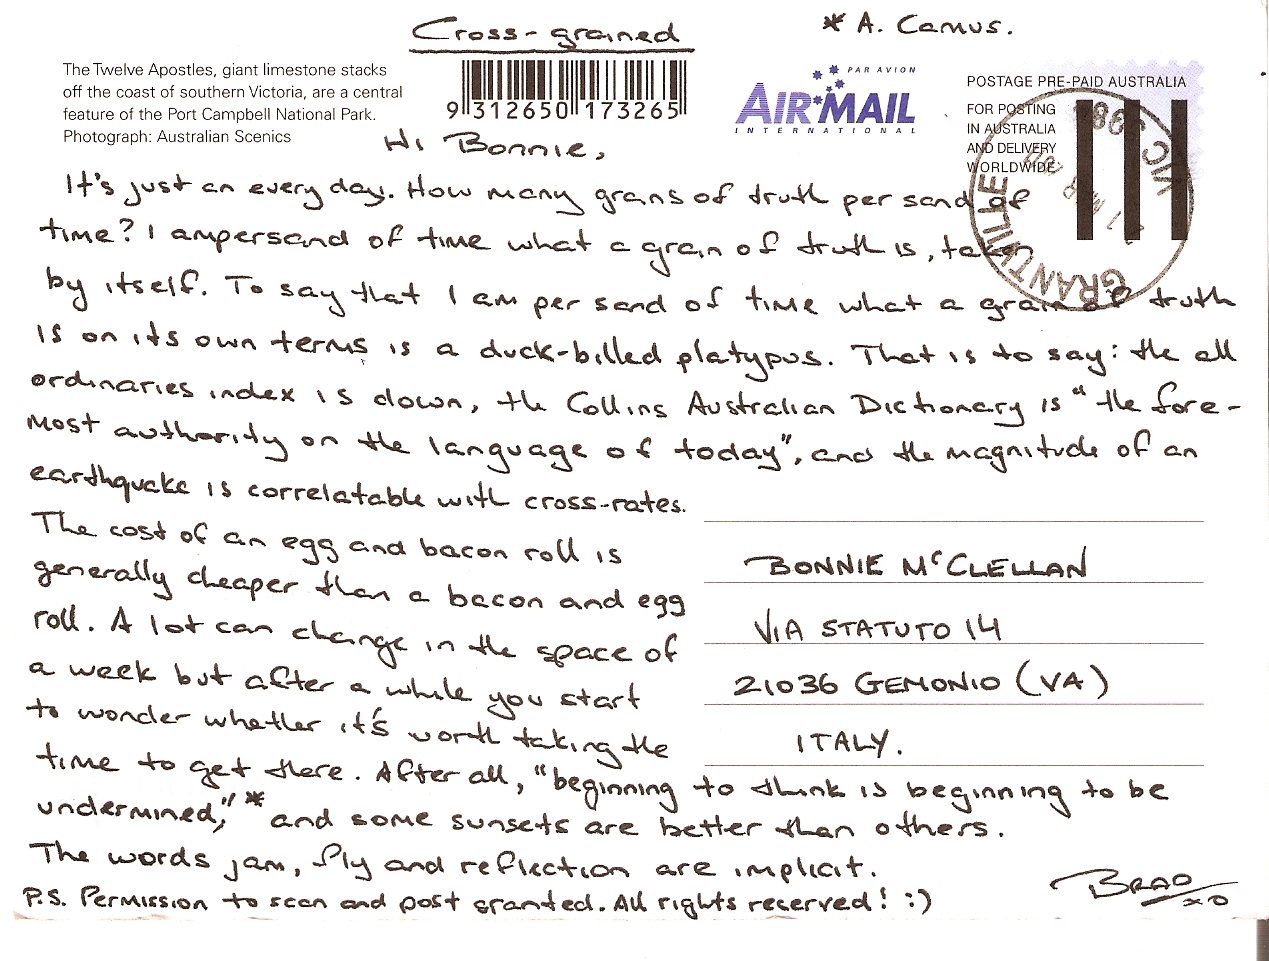 Cross-grained
* A. Camus.
The Twelve Apostles, giant limestone stacks
off the coast of southern Victoria, are a central
feature of the Port Campbell National Park.
Photograph: Australian Scenics
9 312650 173265
PAR AVION
AIR MAIL
INTERNATIONAL
POSTAGE PRE-PAID AUSTRALIA
FOR POSTING
IN AUSTRALIA
AND DELIVERY
WORLDWIDE
GRANTVILLE
VIC 3984
Hi Bonnie,
It's just an every day. How many grains of truth per sand of
time? I ampersand of time what a grain of truth is, taken
by itself. To say that I am per sand of time what a grain of truth
is on its own terms is a duck-billed platypus. That is to say: the all
ordinaries index is down, the Collins Australian Dictionary is "the fore-
most authority on the language of today", and the magnitude of an
earthquake is correlatable with cross-rates.
The cost of an egg and bacon roll is
generally cheaper than a bacon and egg
roll. A lot can change in the space of
a week but after a while you start
to wonder whether it's worth taking the
time to get there. After all, "beginning to think is beginning to be
undermined,"* and some sunsets are better than others.
The words jam, fly and reflection are implicit.
P.S. Permission to scan and post granted. All rights reserved! :)
Brad
xo
BONNIE McCLELLAN
VIA STATUTO 14
21036 GEMONIO (VA)
ITALY.